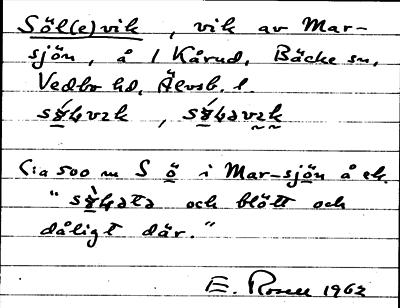 Söl(e)vik, vik av Mar-
sjön, å 1 Kårud, Bäcke sn,
Vedbo hd, Älvsb. l.
Ca 500 m S ö i Mar-sjön å ek.
och blött och
dåligt där."
E. Rosell 1962